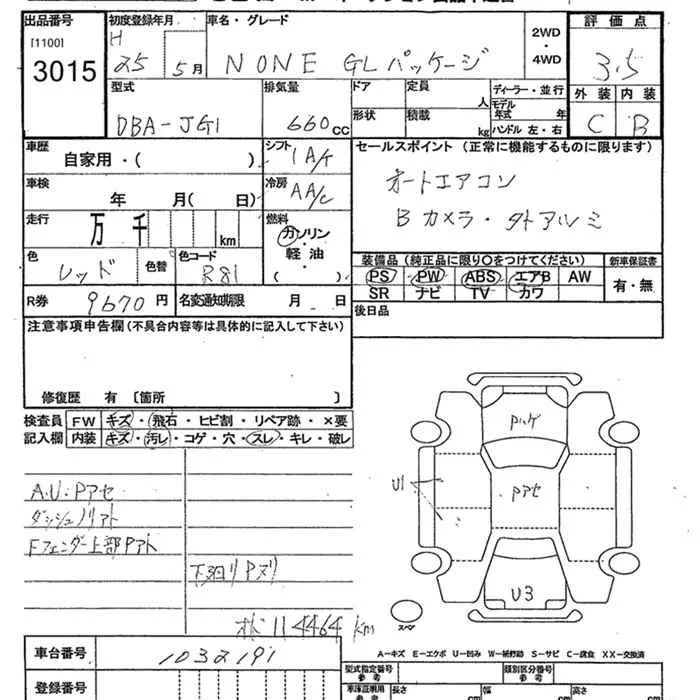 出品番号
[1100]
3015
初度登録年月
H
25 5月
車名・グレード
NONE GLパッケージ
2WD
・
4WD
評価点
3.5
外装 内装
C B
型式
DBA-JG1
排気量
660cc
ドア
形状
定員
人
積載
kg
ディーラー・並行
モデル年式 年
ハンドル 左・右
車歴
自家用・( )
シフト
IA/T
セールスポイント (正常に機能するものに限ります)
オートエアコン
Bカメラ・タトアルミ
車検
年 月( 日)
冷房
AA/C
走行
万 千 km
燃料
ガソリン
・
軽油
( )
色
レッド
色替
色コード
R81
装備品 (純正品に限り○をつけてください)
PS PW ABS エアB AW
SR ナビ TV カワ
新車保証書
有・無
R券
9670円
名変通知期限 月 日
後日品
注意事項申告欄(不具合内容等は具体的に記入して下さい)
修復歴 有 〔箇所 〕
検査員
記入欄
FW キズ・飛石・ヒビ割・リペア跡・×要
内装 キズ・汚レ・コゲ・穴・スレ・キレ・破レ
A.U:Pアセ
ダッシュノリアト
Fフェンダー上部Pアト
下廻りPヌリ
オド114464km
Pハゲ
Pアセ
U1
U3
スペア
A-キズ E-エクボ U-凹み W-補修跡 S-サビ C-腐食 XX-交換済
車台番号
1032191
登録番号
型式指定番号
参考
類別区分番号
参考
車庫証明用
参考
長さ
cm
幅
cm
高さ
cm